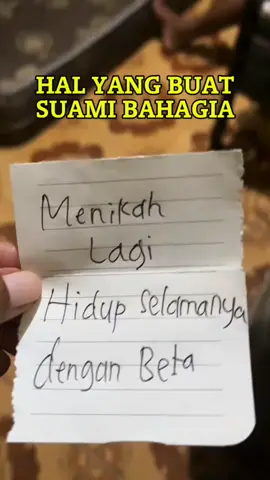 HAL YANG BUAT
SUAMI BAHAGIA
Menikah
Lagi
Hidup selamanya
dengan Beta